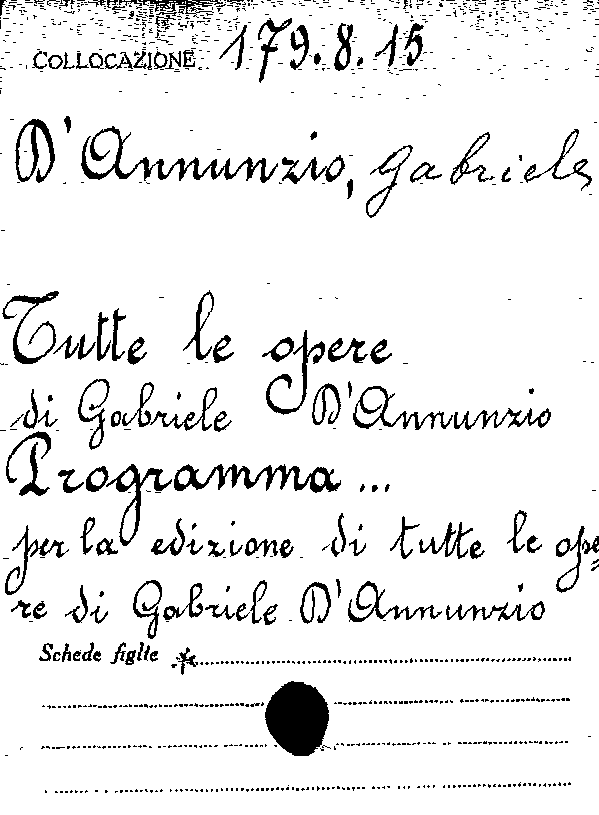 COLLOCAZIONE 179.8.15
D'Annunzio, Gabriele
Tutte le opere
di Gabriele D'Annunzio
Programma ...
per la edizione di tutte le ope=
re di Gabriele D'Annunzio
Schede figlie *